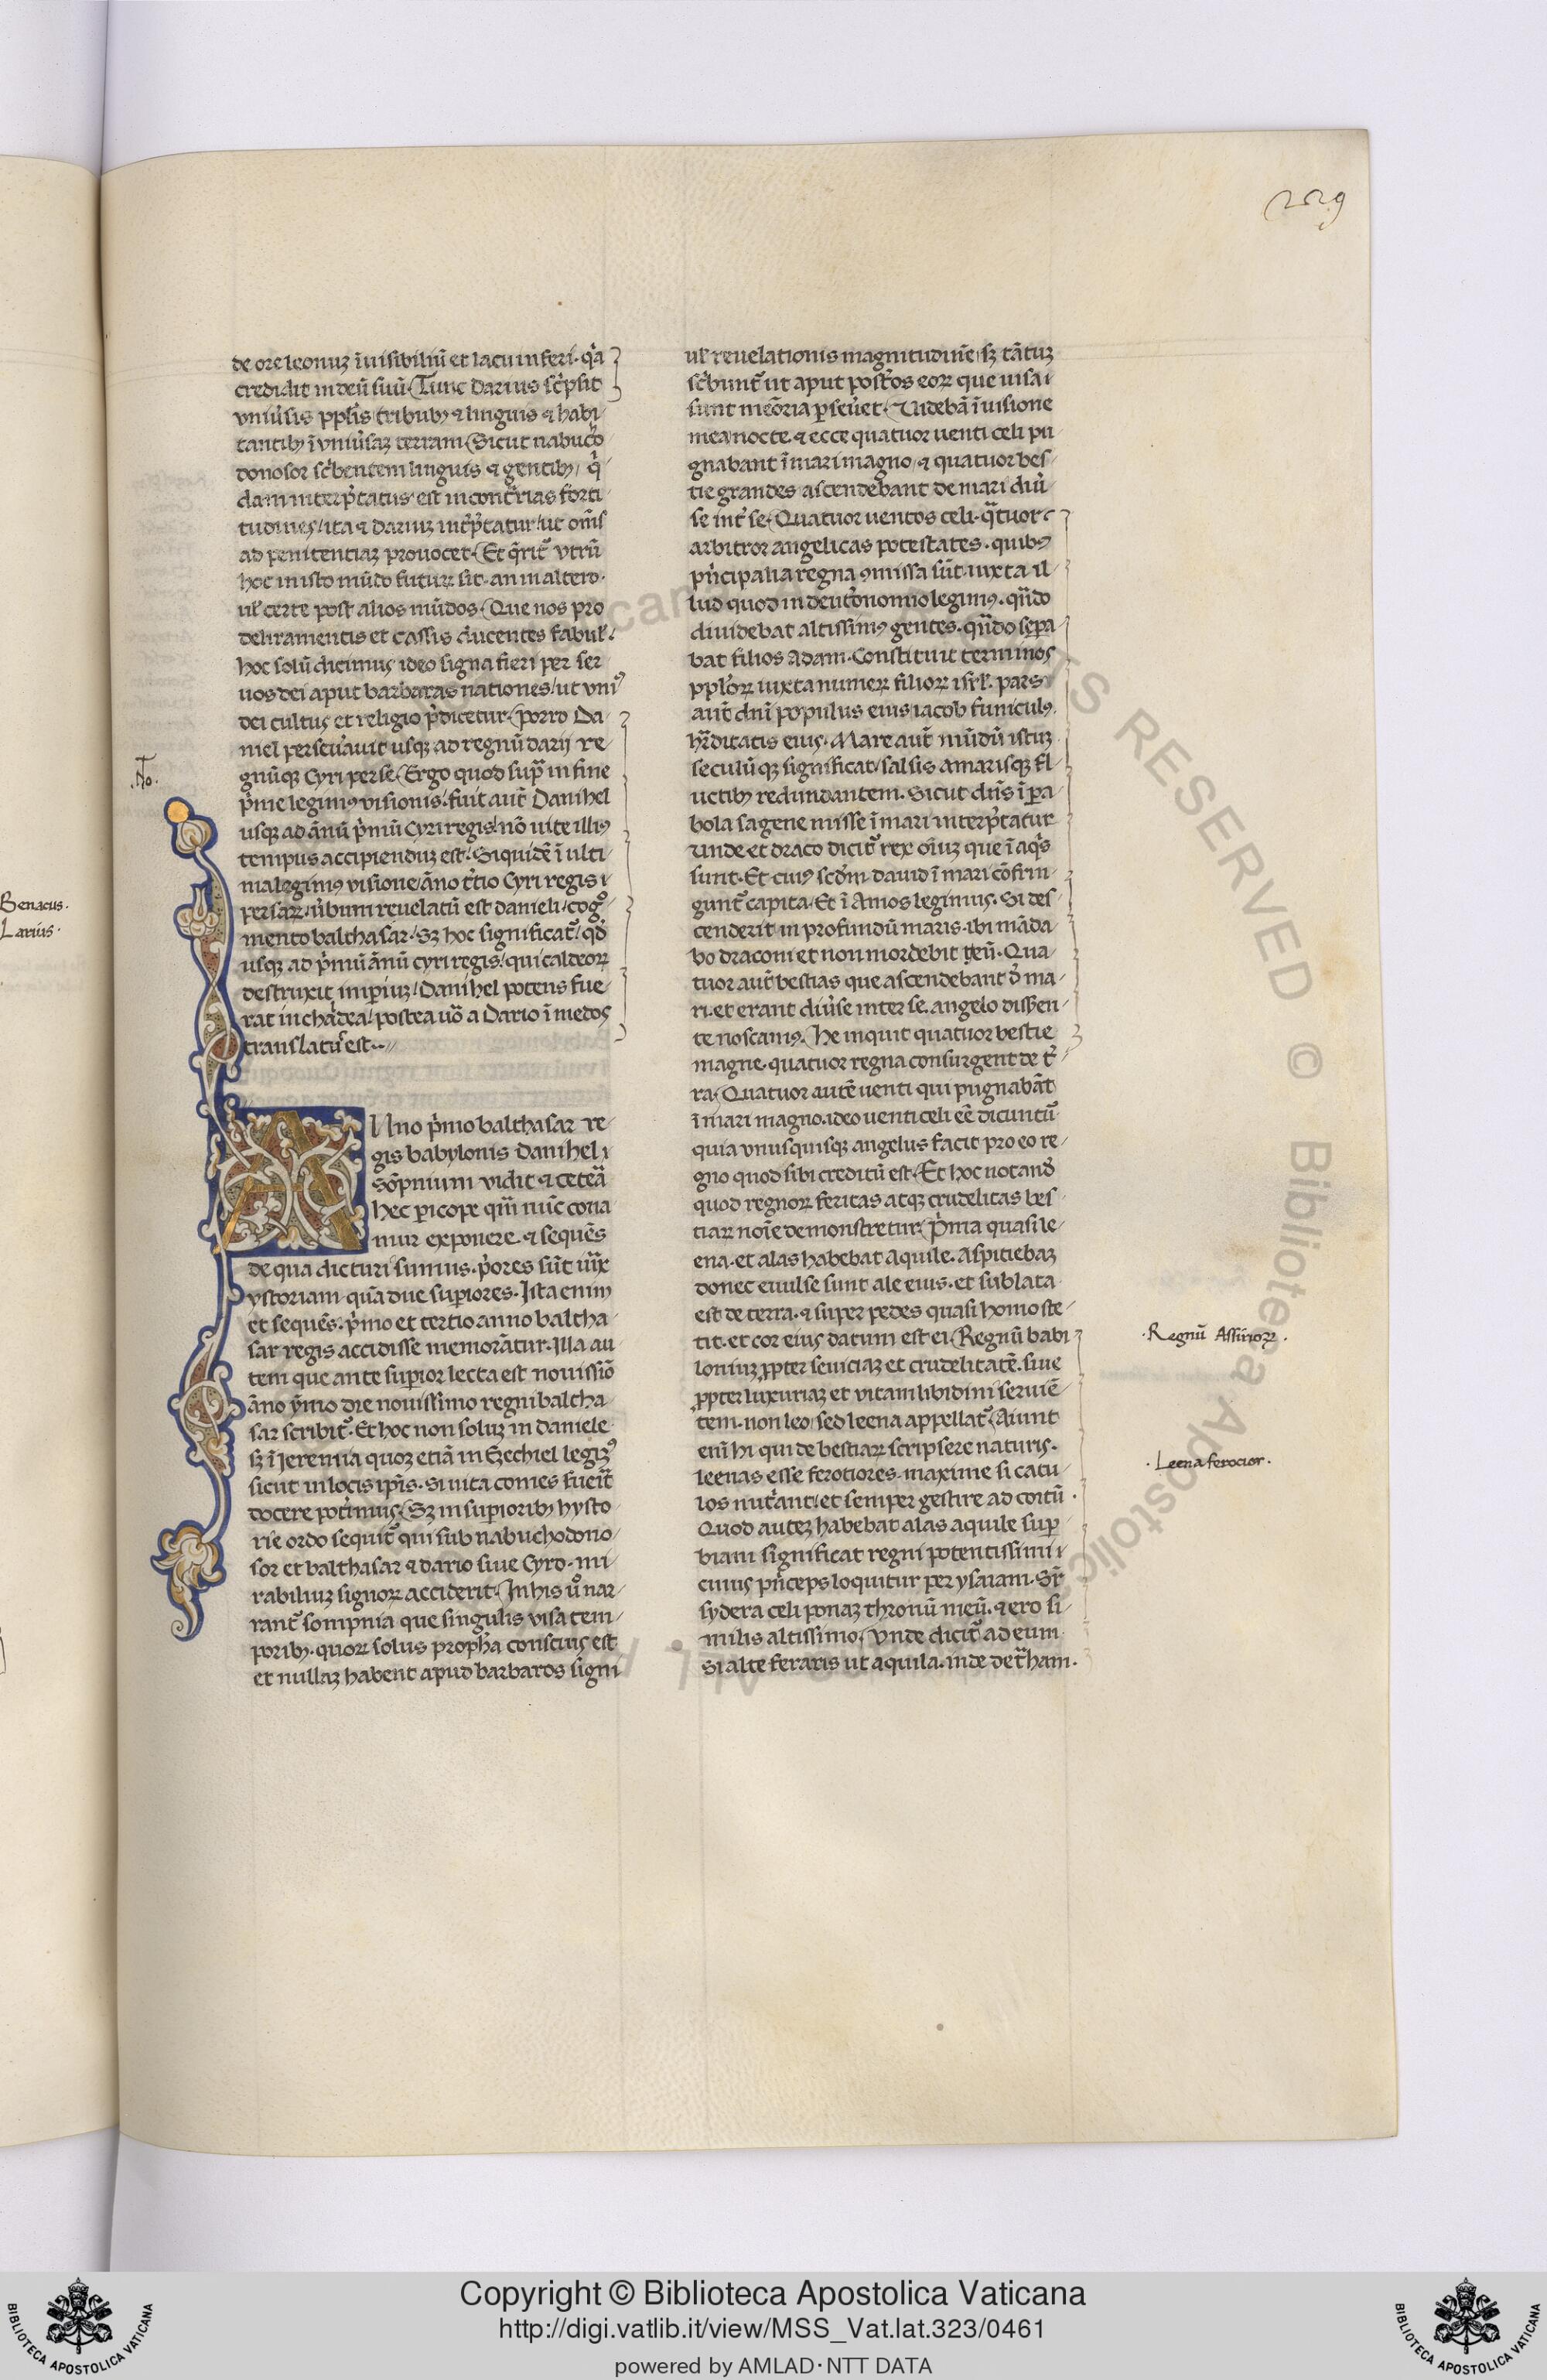 229
de ore leonuz ī uisibiliū et lacu inferi. q̇a
credidit in deū suū. Tunc Darius sc̓psit
vniu̓sis pplīs tribubꝫ & linguis & habi
tantibꝫ ī vniu̓saꝫ terram. Sicut nabucħo
donosor sc̓bentem linguis & gentibꝫ / q̇
dam interp̓tatus est in cont̓rias forti
tudines / ita & dariuꝫ int̓p̓tatur / ut om̄s
ad penitentiaꝫ prouocet. Et q̄rit᷑ vtrū
hoc in isto mūdo futuꝝ sit. an in altero.
ul̓ certe post alios mūdos. Que nos pro
deliramentis et cassis ducentes fabul̓.
hoc solū dicimus ideo signa fieri per ser
uos dei aput barbaras nationes / ut vniꝰ
dei cultus et religio p̓dicetur. Porro Da
niel perseu̓auit usqꝫ ad regnū darij re
gnūqꝫ Cyri perse. Ergo quod sup̄ in fine
.No.
p̓me legimꝰ visionis. fuit aut̄ Danihel
usqꝫ ad ānū p̓mū Cyri regis / nō uite illiꝰ
tempus accipienduꝫ est. Siquidē ī ulti
ma legimꝰ visione / āno t̓tio Cyri regis
persaꝝ / u̓bum reuelatū est danieli / cog
Benacus.
Larius.
mento balthasar. Sꝫ hoc significat᷑ / qd̓
usqꝫ ad p̓mū ānū cyri regis / qui caldeoꝝ
destruxit imꝑiuꝫ / Danihel potens fue
rat in chaldea / postea uō a Dario ī medos
translatꝰ est.
ANno p̓mo balthasar re
gis babylonis Danihel
sōpnium vidit & ceteā
hec ꝑicope q̄m nūc cona
mur exponere. & sequēs
de qua dicturi sumus. p̓ores sūt iux̄
ystoriam quā due suꝑiores. Ista enim
et sequēs. p̓mo et tertio anno baltha
sar regis accidisse memorātur. Illa au
tem que ante suꝑior lecta est nouissīo
āno ymo die nouissimo regni baltha
sar scribit᷑. Et hoc non soluꝫ in daniele
sꝫ ī Jeremia quoꝫ etiā in Ezechiel legiꝫꝰ
sicut in locis ip̄is. si uita comes fuerīt
docere pot̓imus. Sꝫ in suꝑioribꝫ hysto
rie ordo sequit᷑ qui sub nabuchodono
sor et balthasar & dario siue Cyro. mi
rabiliuꝫ signoꝝ acciderit. In his u̓o nar
rant᷑ sompnia que singulis visa tem
poribꝫ. quoꝝ solus propħa conscius est
et nullaꝫ habent apud barbaros signi
ul̓ reuelationis magnitudinē / sꝫ tātuꝫ
sc̓bunt᷑ ut aput post̓os eoꝝ que uisa
sunt meōria ꝑseu̓et. Videbā ī uisione
mea nocte. & ecce quatuor uenti celi pu
gnabant ī mari magno / & quatuor bes
tie grandes ascendebant de mari diu̓
se int̓ se. Quatuor uentos celi. q̄tuor
arbitror angelicas potestates. quibꝰ
pn̓cipalia regna ꝯmissa sūt. iuxta il
lud quod in deut̓onomio legimꝰ. qn̄do
diuidebat altissimꝰ gentes. qn̄do seꝑa
bat filios adam. Constituit terminos
pplōꝝ iuxta numeꝝ filioꝝ isrl̓. pars
aut̄ dn̄i populus eius iacob funiculꝰ
hr̄ditatis eius. Mare aut̄ mūdū istuꝫ
seculūqꝫ significat / salsis amarisqꝫ fl
uctibꝫ redundantem. Sicut dn̄s ī ꝑa
bola sagene misse ī mari interp̓tatur
Unde et draco dicit᷑ rex oīuꝫ que ī aq̓s
sunt. Et cuiꝰ scd̓m dauid ī mari cōfrin
gunt᷑ capita. Et ī Amos legimus. Si des
cenderit in profundū maris. ibi māda
bo draconi et non mordebit eū. Qua
tuor aut̄ bestias que ascendebant d̓ ma
ri. et erant diu̓se inter se. angelo disseren
te noscamꝰ. He inquit quatuor bestie
magne. quatuor regna consurgent de t̓
ra. Quatuor autē uenti qui pugnabāt
ī mari magno. ideo uenti celi eē dicunt᷑
quia vnusquisqꝫ angelus facit pro eo re
gno quod sibi creditū est. Et hoc notand̓
quod regnoꝝ feritas atqꝫ crudelitas bes
tiaꝝ noīe demonstretur. P̓ma quasi le
ena. et alas habebat aquile. Aspitiebaꝫ
donec euulse sunt ale eius. et sublata
est de terra. & super pedes quasi homo ste
tit. et cor eius datum est ei. Regnū babi
.Regnū Assirioꝝ.
loniuꝫ ꝓpter seuiciaꝫ et crudelitatē. siue
ꝓpter luxuriaꝫ et vitam libidini seruiē
tem. non leo / sed leena appellat᷑. Aiunt
enī hi qui de bestiaꝝ scripsere naturis.
leenas esse ferotiores. maxime si catu
.Leena ferocior.
los nut̓ant. et semper gestire ad coitū.
Quod auteꝫ habebat alas aquile suꝑ
biam significat regni potentissimi
cuius pn̓ceps loquitur per ysaiam. Sr̄
sydera celi ponaꝫ thronū meū. & ero si
milis altissimo. Vnde dicit᷑ ad eum
Si alte feraris ut aquila. inde det̓ham.
Copyright © Biblioteca Apostolica Vaticana
http://digi.vatlib.it/view/MSS_Vat.lat.323/0461
powered by AMLAD·NTT DATA
BIBLIOTECA APOSTOLICA VATICANA
BIBLIOTECA APOSTOLICA VATICANA